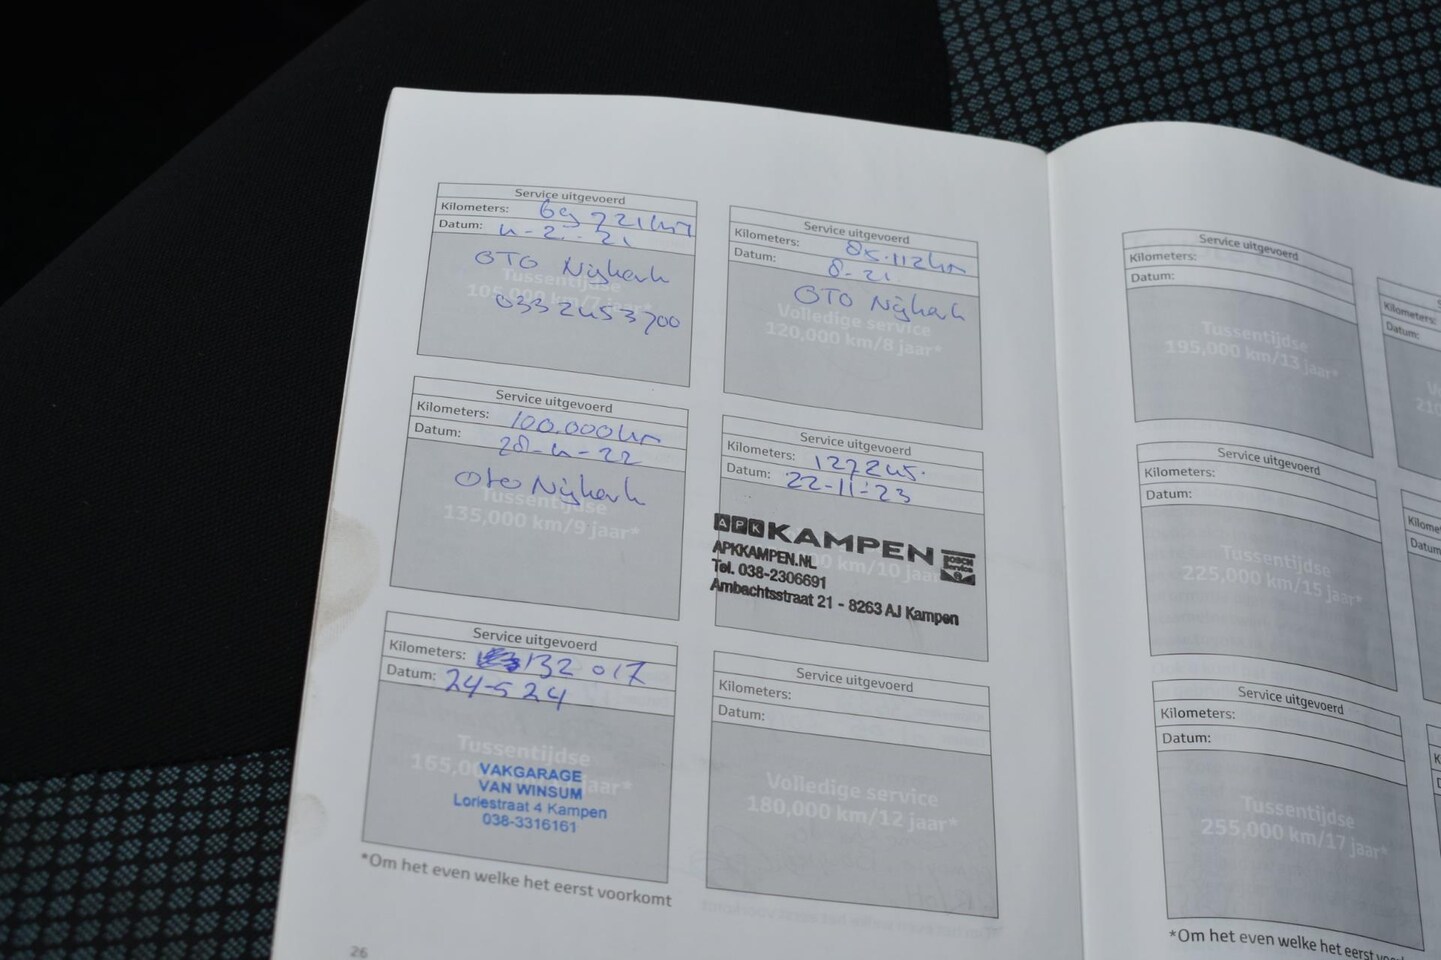 Service uitgevoerd
Kilometers: 69721km
Datum: 4-2-21
OTO Nijkerk
Tussentijdse
105,000 km/7 jaar*
0332453700
Service uitgevoerd
Kilometers: 85.112km
Datum: 8-21
OTO Nijkerk
Volledige service
120,000 km/8 jaar*
Service uitgevoerd
Kilometers: 100.000km
Datum: 28-4-22
Oto Nijkerk
Tussentijdse
135,000 km/9 jaar*
Service uitgevoerd
Kilometers: 127245.
Datum: 22-11-23
APK KAMPEN
km/10 jaar
BOSCH
Service
APKKAMPEN.NL
Tel. 038-2306691
Ambachtsstraat 21 - 8263 AJ Kampen
Service uitgevoerd
Kilometers: 132 017
Datum: 24-5 24
Tussentijdse
165,0 jaar*
VAKGARAGE
VAN WINSUM
Loriestraat 4 Kampen
038-3316161
Service uitgevoerd
Kilometers:
Datum:
Volledige service
180,000 km/12 jaar*
*Om het even welke het eerst voorkomt
26
Service uitgevoerd
Kilometers:
Datum:
Tussentijdse
195,000 km/13 jaar*
Service uitgevoerd
Kilometers:
Datum:
Tussentijdse
225,000 km/15 jaar*
Service uitgevoerd
Kilometers:
Datum:
Tussentijdse
255,000 km/17 jaar*
*Om het even welke het eerst
Kilometers:
Datum:
Kilome
Datum